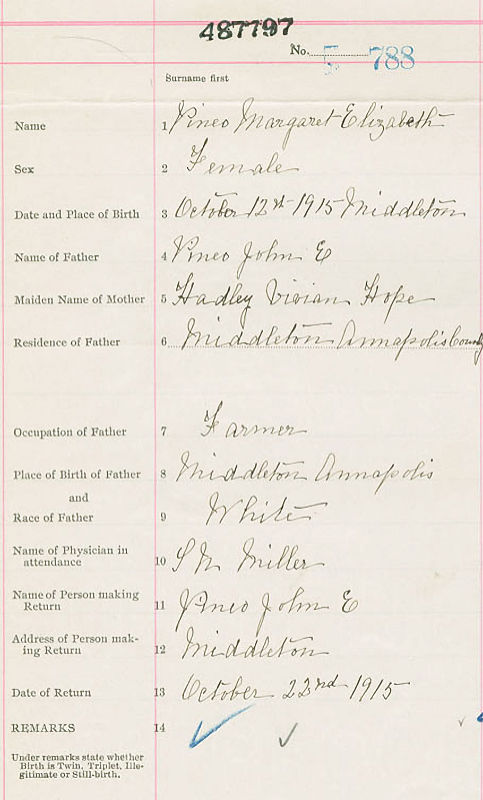 487797
No. 5 788
Surname first
Name 1 Pineo Margaret Elizabeth
Sex 2 Female
Date and Place of Birth 3 October 12st 1915 Middleton
Name of Father 4 Pineo John E
Maiden Name of Mother 5 Hadley Vivian Hope
Residence of Father 6 Middleton Annapolis County
Occupation of Father 7 Farmer
Place of Birth of Father 8 Middleton Annapolis
and
Race of Father 9 White
Name of Physician in
attendance 10 S N Miller
Name of Person making
Return 11 Pineo John E
Address of Person mak-
ing Return 12 Middleton
Date of Return 13 October 22nd 1915
REMARKS 14
Under remarks state whether
Birth is Twin, Triplet, Ille-
gitimate or Still-birth.